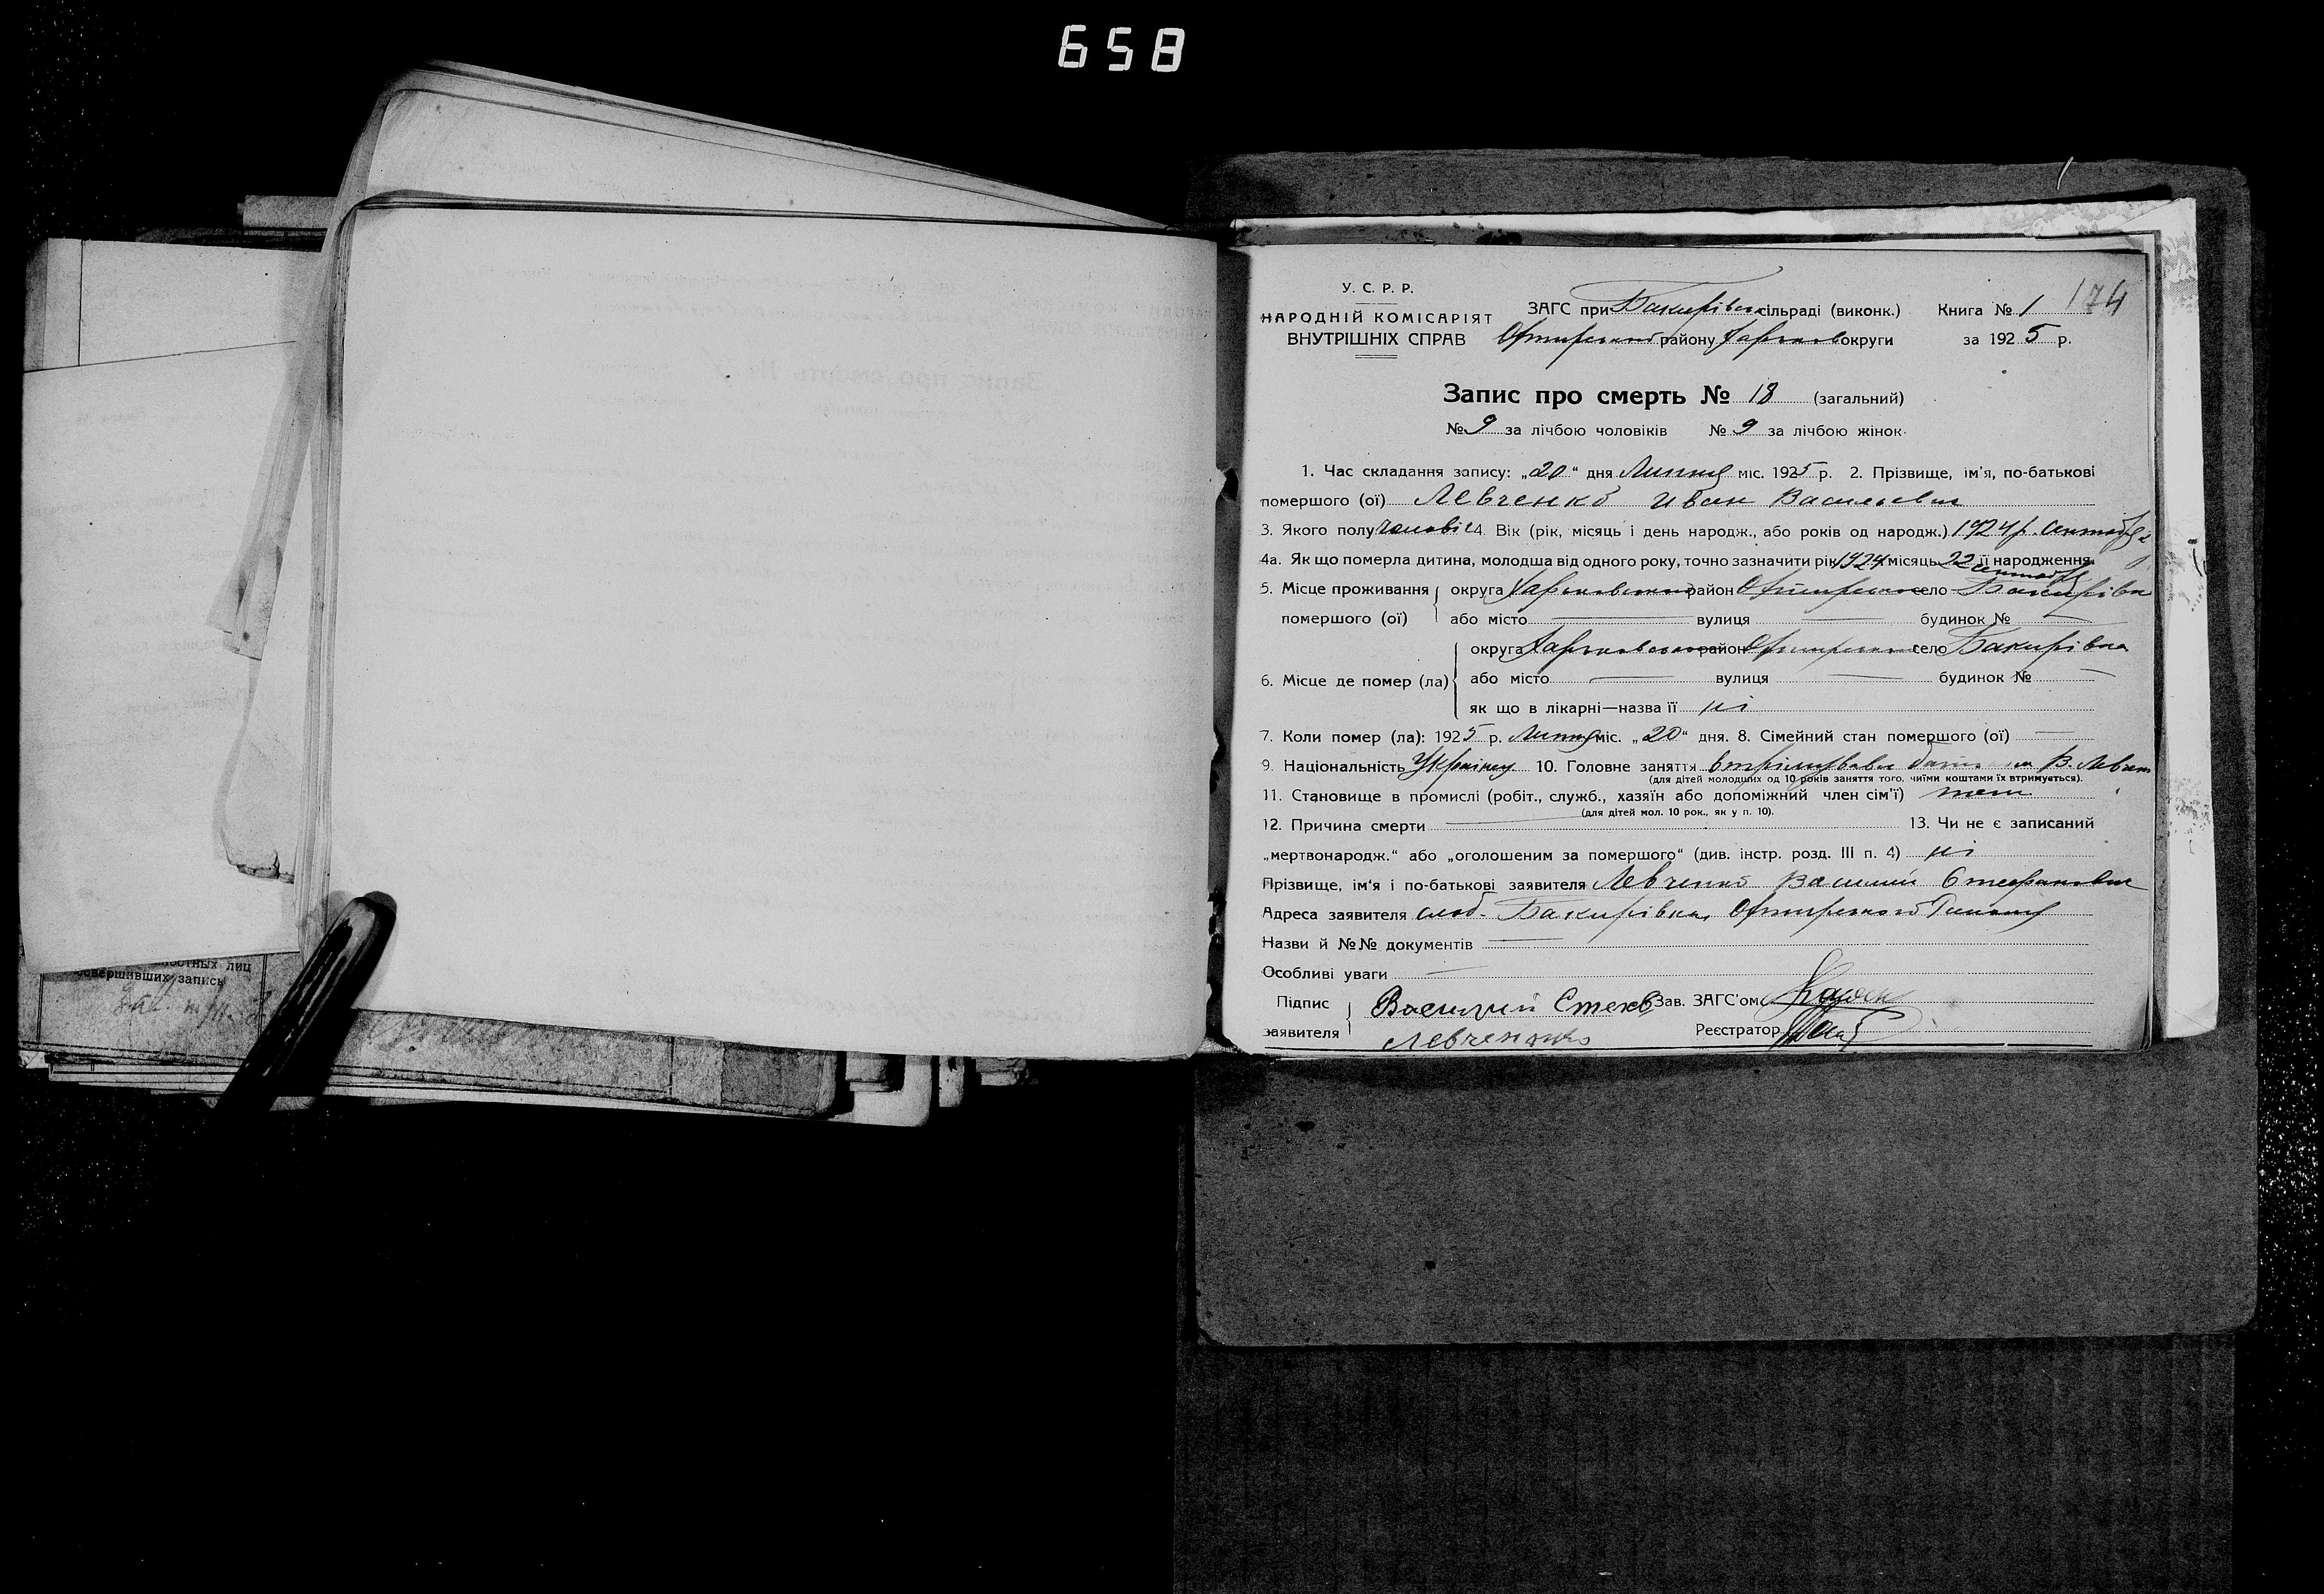 658
174
У. С. Р. Р.
НАРОДНІЙ КОМІСАРІЯТ
ВНУТРІШНІХ СПРАВ
ЗАГС при Бакирівск сільраді (виконк.) Книга № 1
району округи за 1925 р.
Запис про смерть № 18 (загальний)
№ 9 за лічбою чоловіків № 9 за лічбою жінок
1. Час складання запису: „20" дня Липня міс. 1925 р. 2. Прізвище, ім'я, по-батькові
помершого (ої) Левченко Иван Васильевич
3. Якого полу чоловіч 4. Вік (рік, місяць і день народж., або років од народж.) 1924 р. Сентября
4а. Як що померла дитина, молодша від одного року, точно зазначити рік 1924 місяць 22 її народження
сентября
5. Місце проживання округа Харьковского район Охтирского село Бакирівка
помершого (ої) або місто вулиця будинок №
округа Харьковского район Охтирского село Бакирівка
6. Місце де помер (ла) або місто вулиця будинок №
як що в лікарні—назва її ні
7. Коли помер (ла): 1925 р. Липня міс. „20" дня. 8. Сімейний стан помершого (ої) —
9. Національність Українец 10. Головне заняття втрімував В.
(для дітей молодших од 10 років заняття того, чиїми коштами їх втримується).
11. Становище в промислі (робіт., служб., хазяїн або допоміжний член сім'ї)
(для дітей мол. 10 рок., як у п. 10).
12. Причина смерти — 13. Чи не є записаний
„мертвонародж." або „оголошеним за помершого" (див. інстр. розд. III п. 4) ні
Прізвище, ім'я і по-батькові заявителя Левченко Василий Стефанович
Адреса заявителя слоб. Бакирівка, Охтирского Району
Назви й №№ документів —
Особливі уваги —
Підпис Василий Стехв Зав. ЗАГС'ом
заявителя Левченко Реєстратор
ностных лиц
совершивших запись